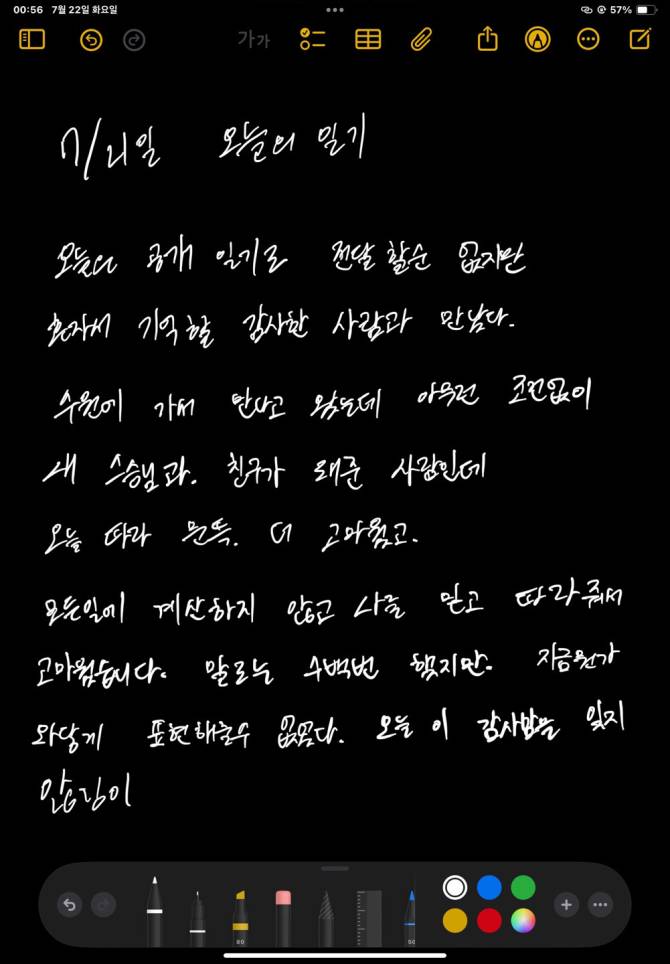 00:56 7월 22일 화요일
57%
가가
7/21일 오늘의 일기
오늘의 공개 일기로 전달 할순 없지만
혼자서 기억할 감사한 사람과 만났다.
수원에 가서 만나고 왔는데 아무런 조건없이
내 스승님과. 친구가 돼준 사람인데
오늘 따라 문득. 더 고마웠고.
모든일에 계산하지 않고 나를 믿고 따라줘서
고마웠습니다. 말로는 수백번 했지만. 지금 뭔가
와닿게 표현해줄수 없었다. 오늘 이 감사함을 잊지
80
50